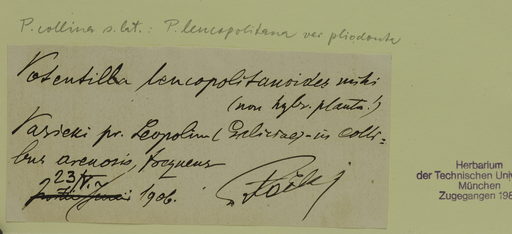 P. collina s. lat.: P. leucopolitana var pliodonta
Potentilla leucopolitanoides mihi
(non hybr. planta!)
pr. Leopolim (Galiciae) - in colli-
bus arenosis, frequens
23/V.
1906.
Herbarium
der Technischen Univ
München
Zugegangen 198